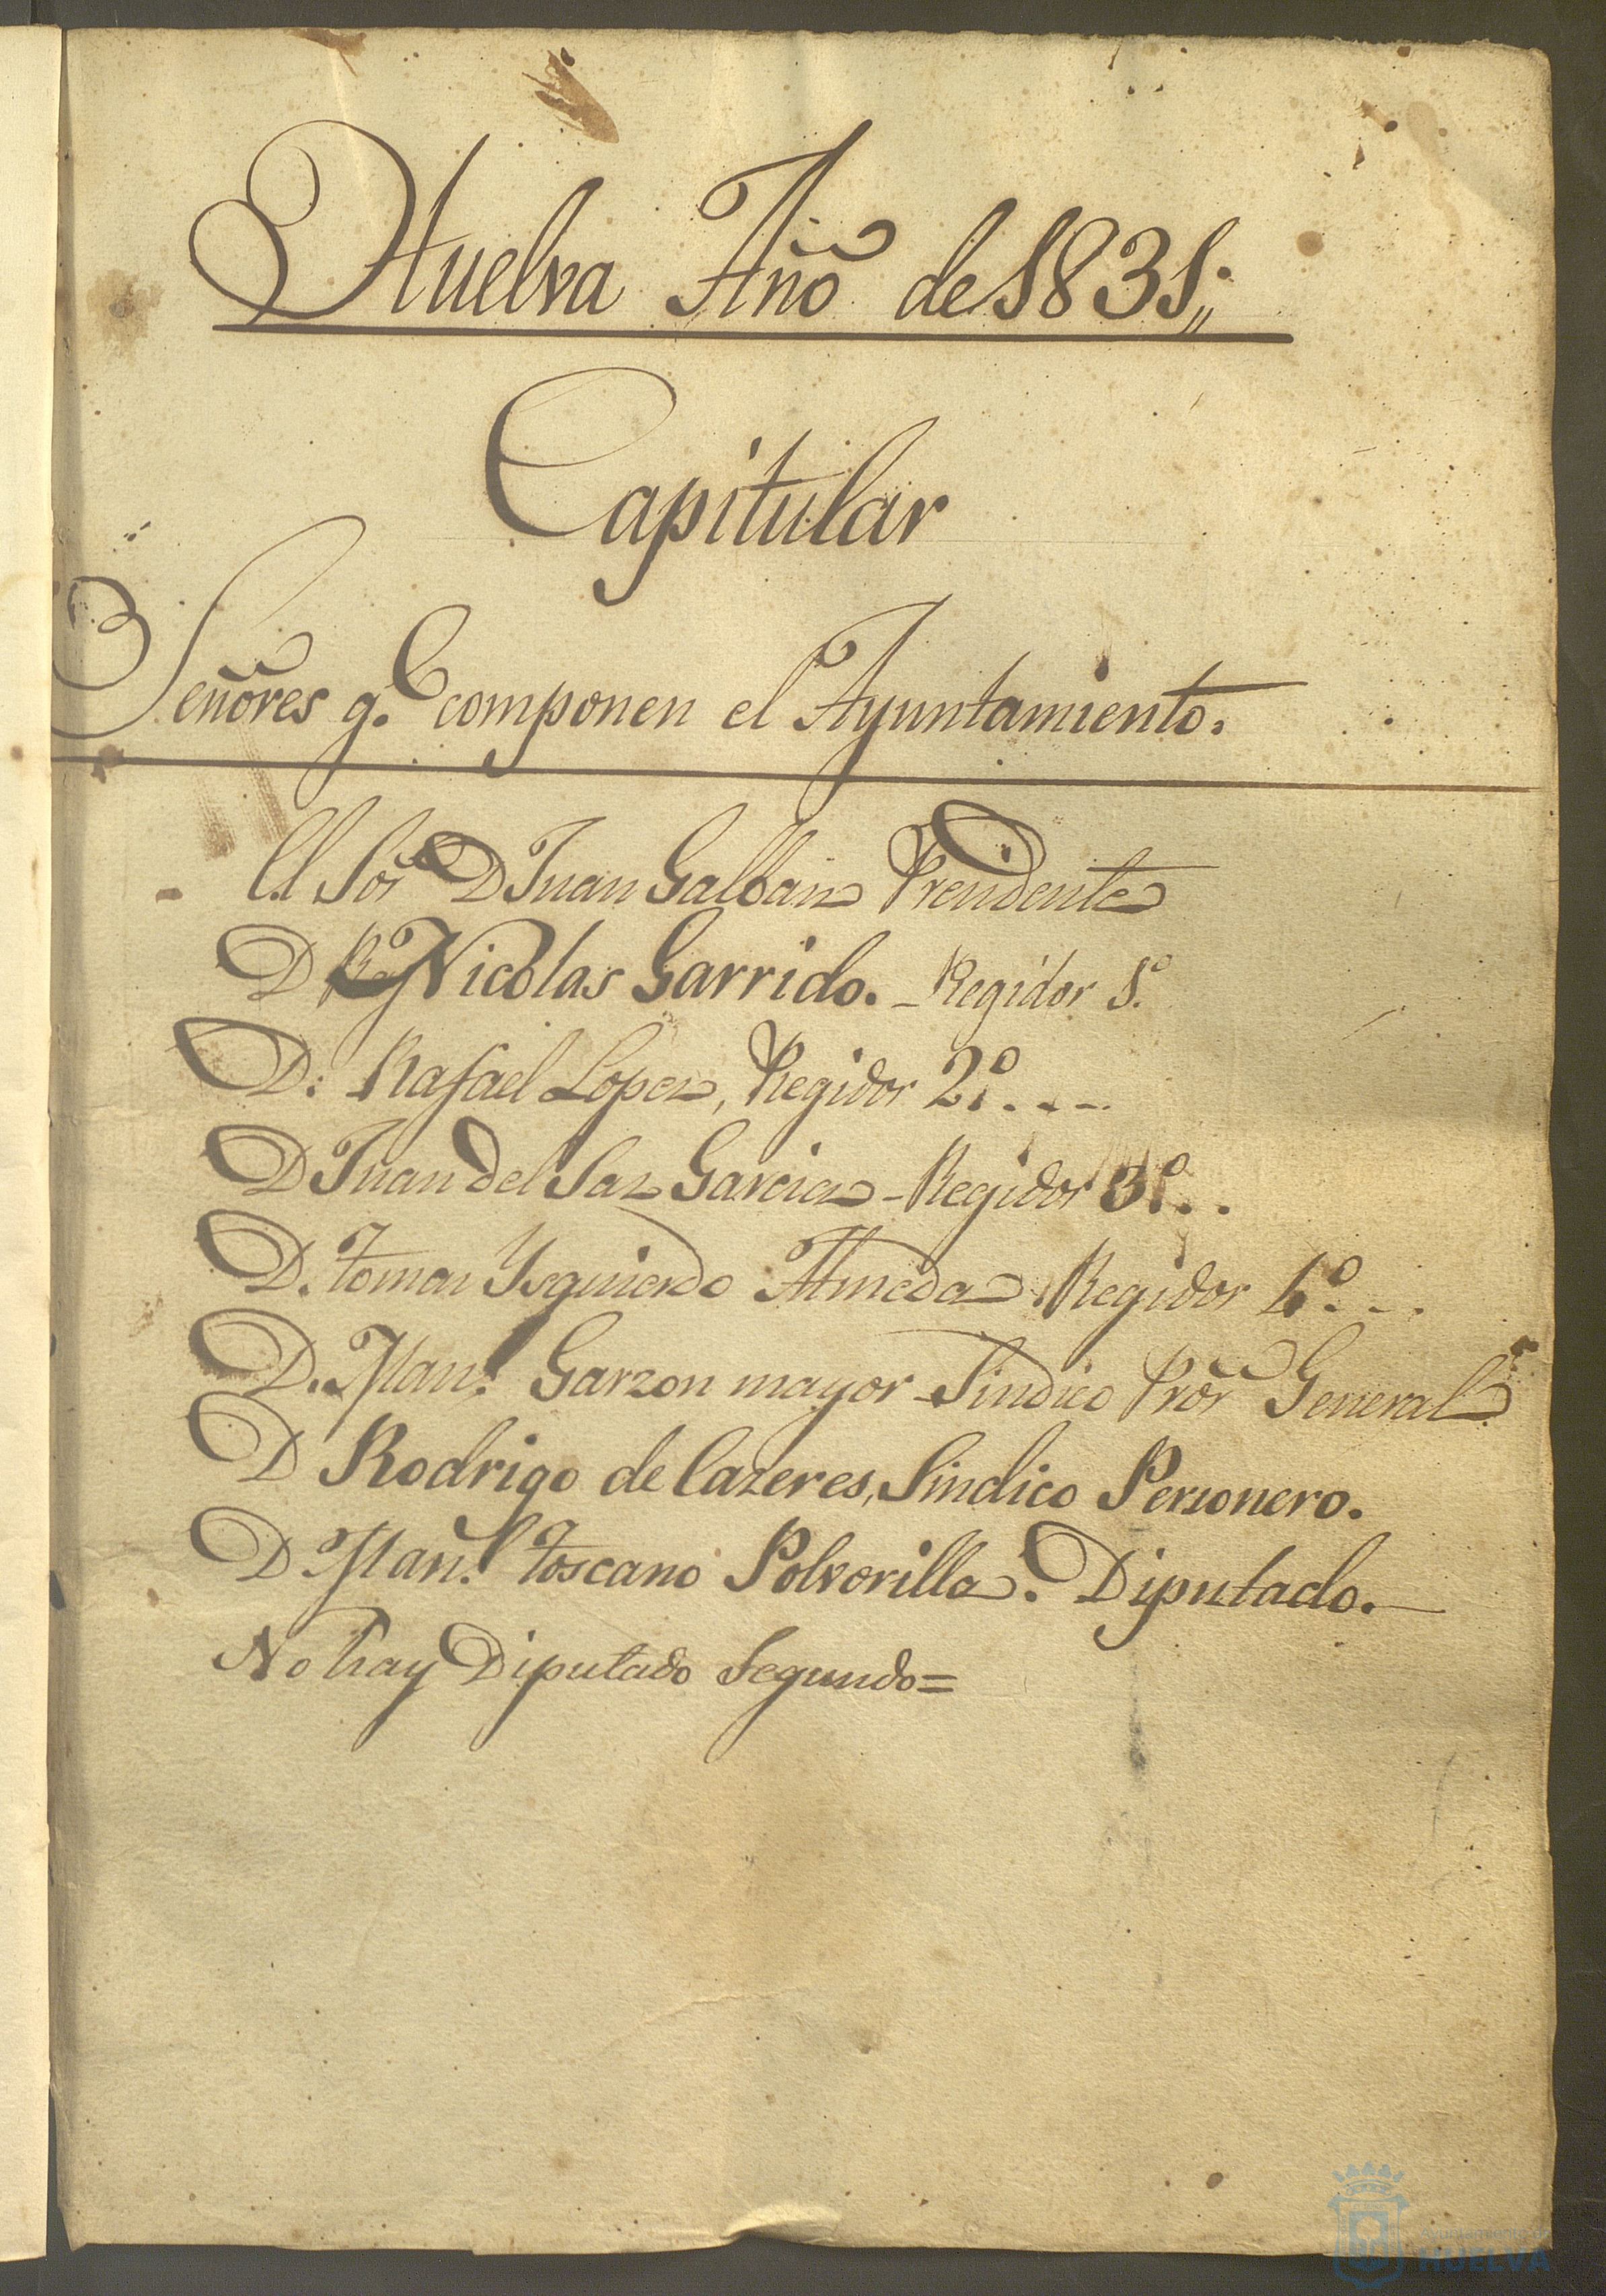 Huelva Año de 1831,,
Capitular
Señores q.e componen el Ayuntamiento.
El Sor D Juan Galban Presidente
D Nicolas Garrido. - Regidor 1.º
D: Rafael Lopez, Regidor 2º.---
D Juan del Saz Garcia - Regidor 3º...
D. Tomas Ysquierdo Almeda Regidor 4º.--.
D. Man.l Garzon mayor Sindico Pror General
D Rodrigo de Cazeres, Sindico Personero.
D Man.l Toscano Polvorilla. Diputado.—
No hay Diputado Segundo=
Ayuntamiento de
HUELVA